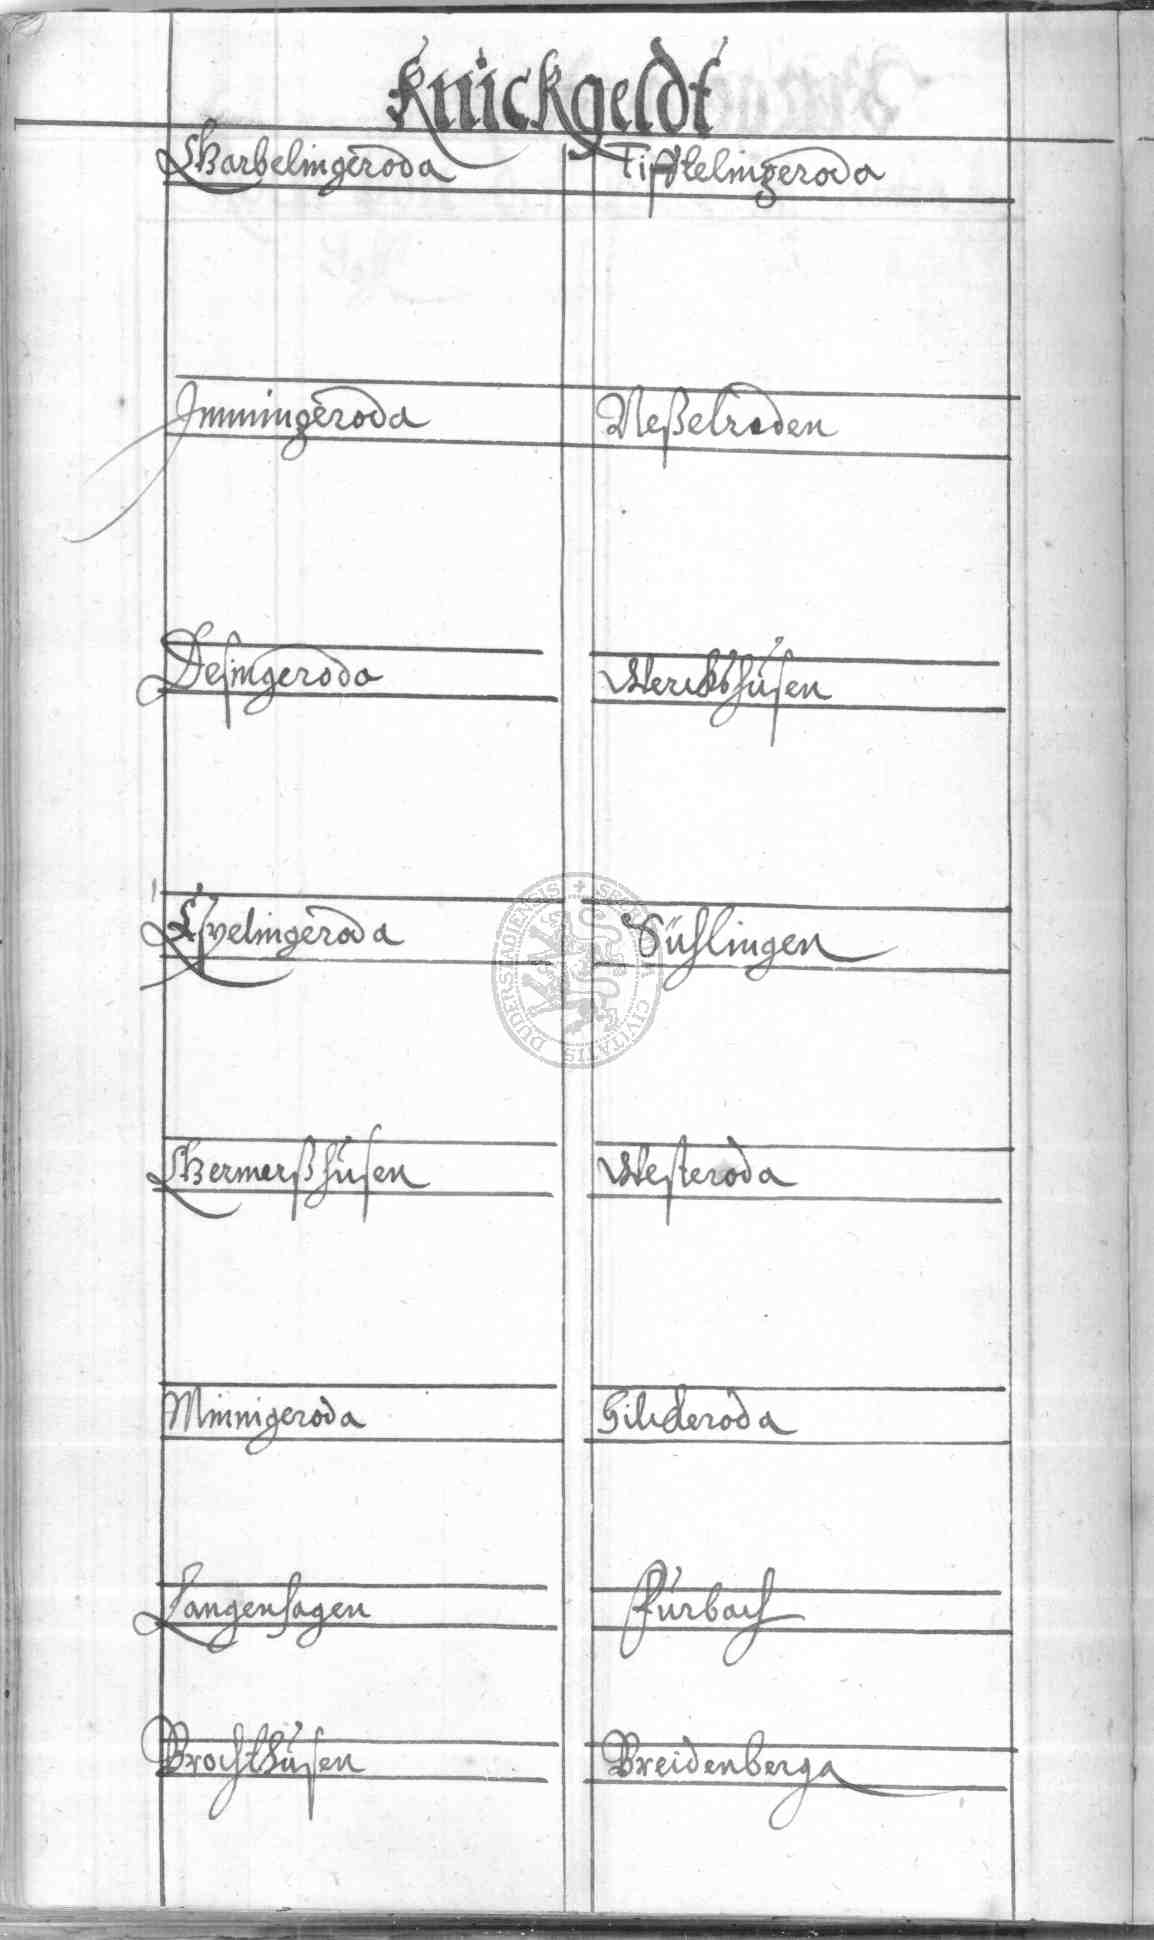 Knickgeldt
Warbelingeroda Tifftelingeroda
Immingeroda Neßelroden
Desingeroda Werckshusen
Esvelingeroda Sühlingen
Wermerßhusen Westeroda
Minnigeroda Gilderoda
Langenhagen Furbach
Brochthusen Breidenberga
SECRETVM CIVITATIS DUDERSTADIENSIS